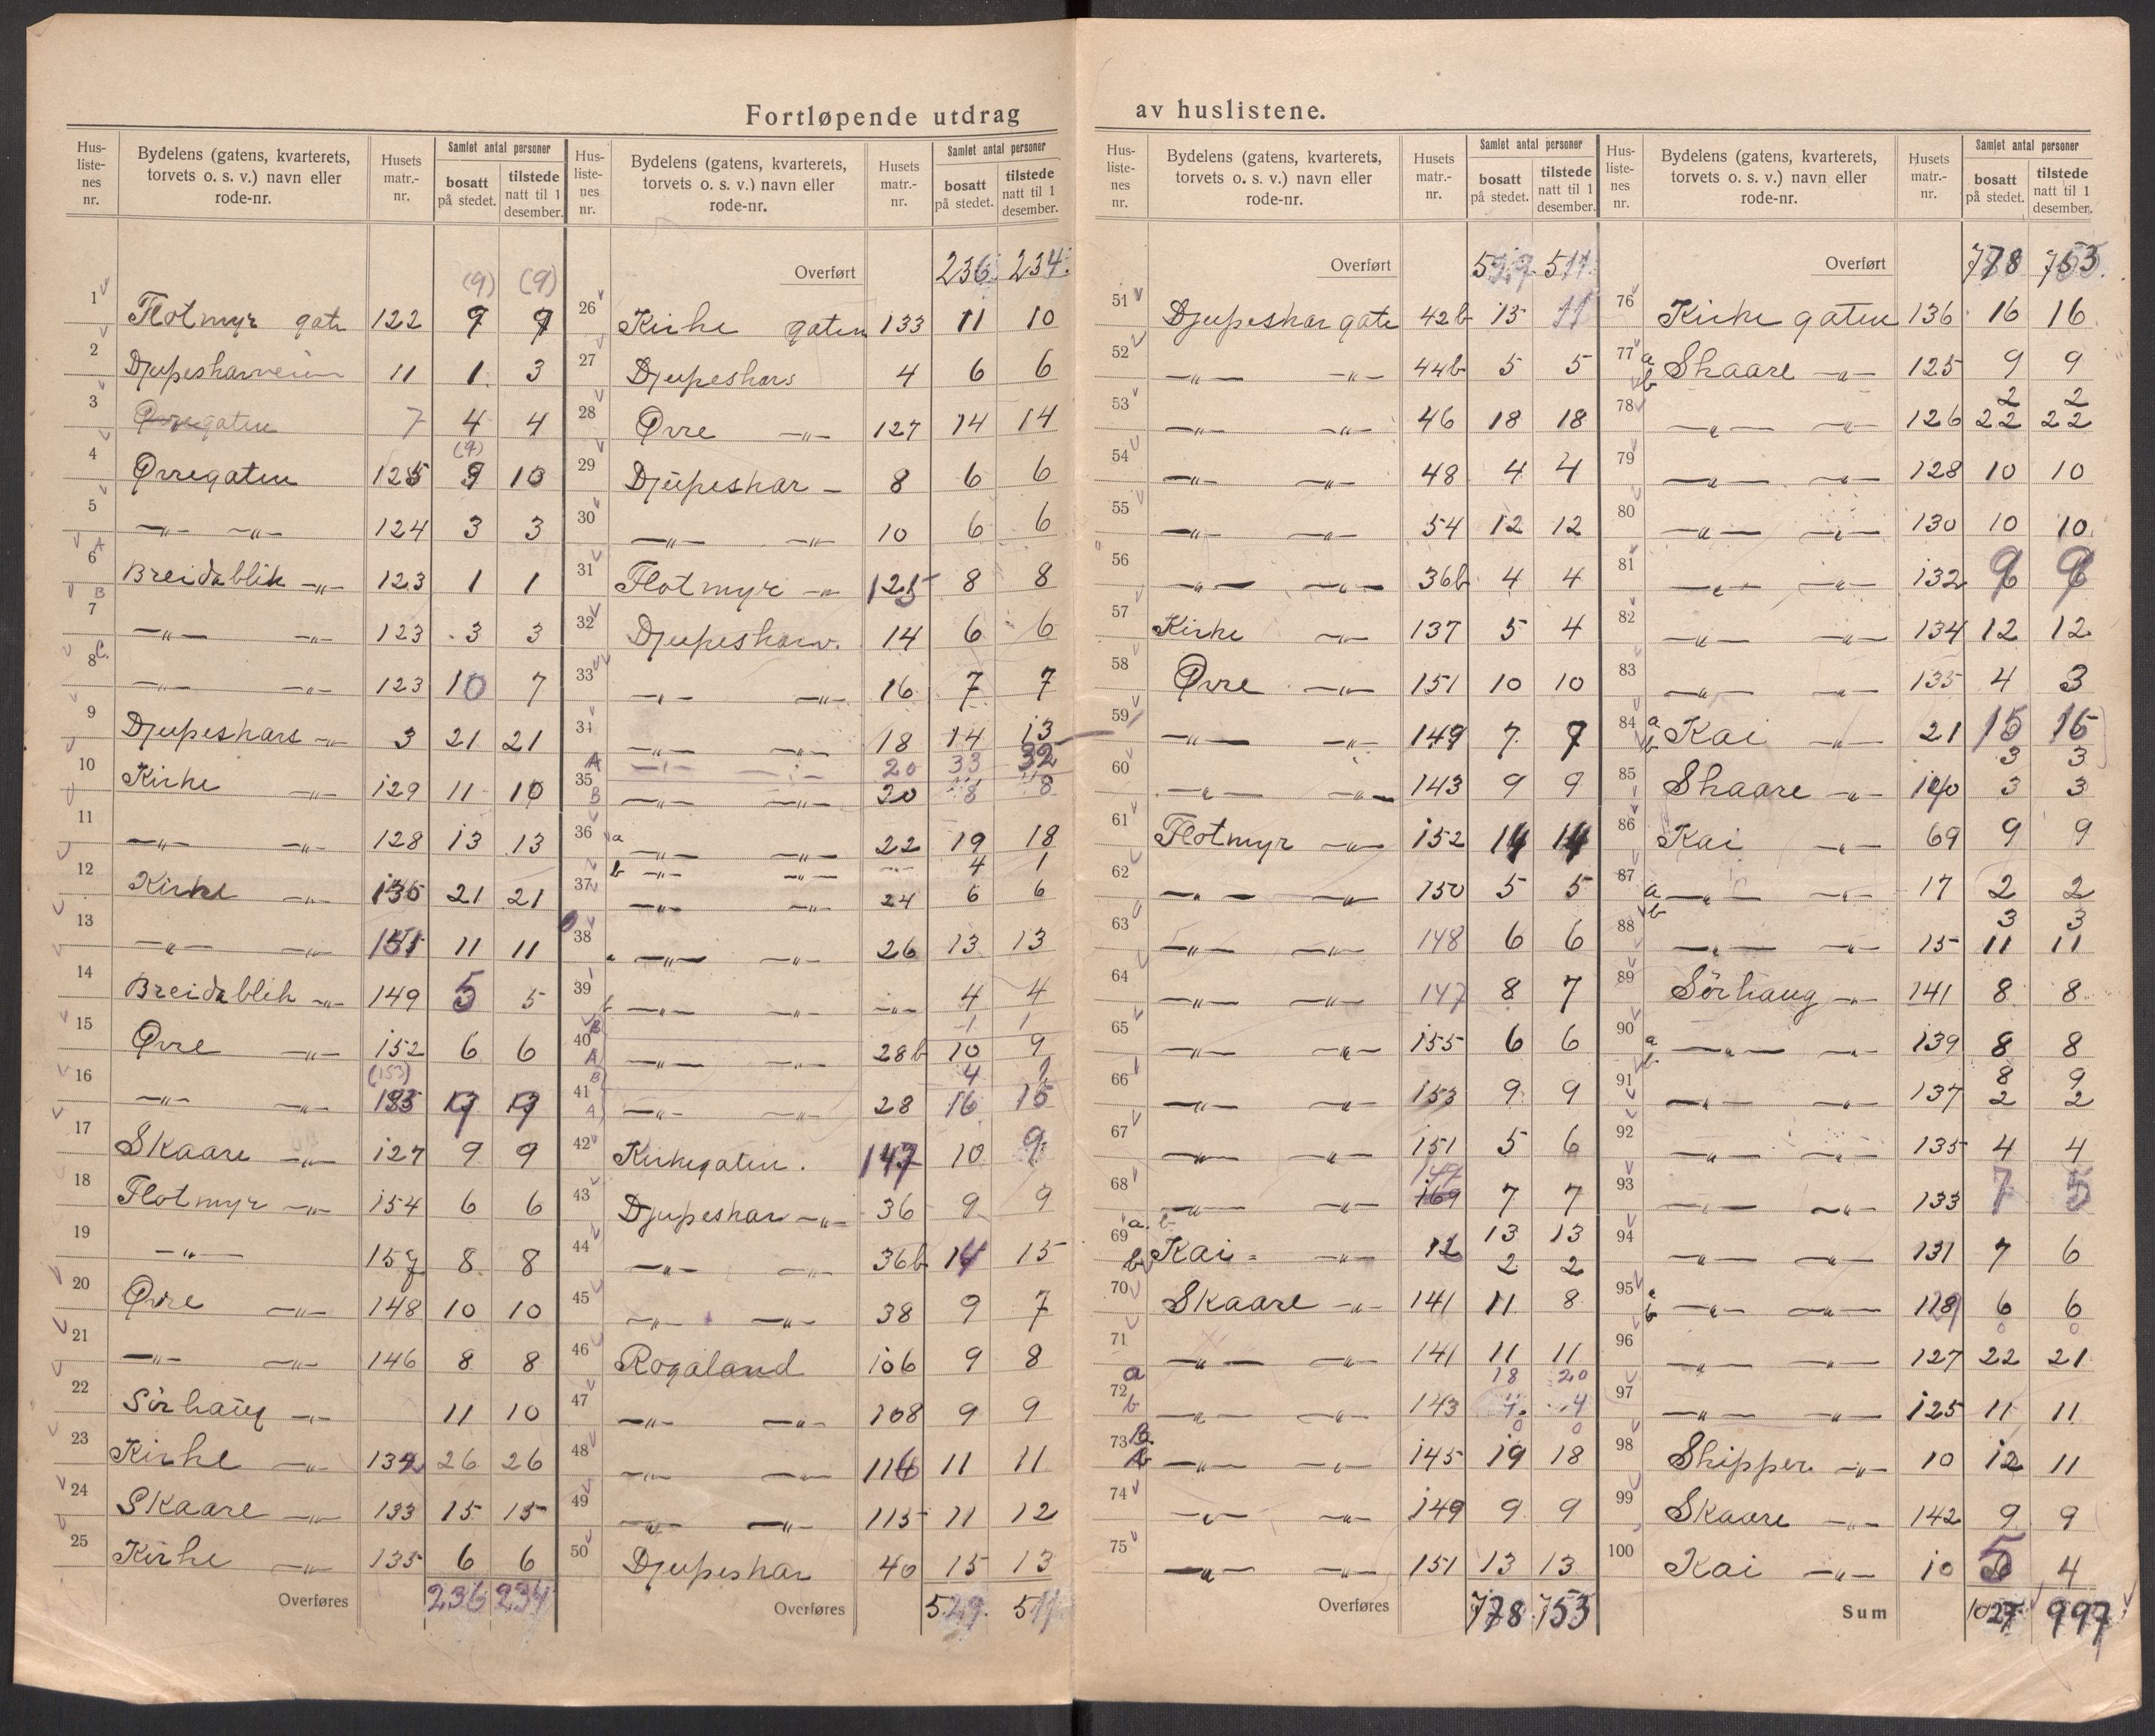 Fortløpende utdrag av huslistene.
Hus-liste-nes nr. Bydelens (gatens, kvarterets, torvets o. s. v.) navn eller rode-nr. Husets matr.-nr. Samlet antal personer bosatt på stedet. tilstede natt til 1 desember.
(9) (9)
1 Flotmyr gate 122 9 9
2 Djupesharveien 11 1 3
3 Øvregaten 7 4 4
(9)
4 Øvregaten 125 9 10
5 —„— —„— 124 3 3
6 A Breidablik —„— 123 1 1
7 B —„— —„— 123 3 3
8 C. —„— —„— 123 10 7
9 Djupeshars —„— 3 21 21
10 Kirke —„— 129 11 10
11 —„— —„— 128 13 13
12 Kirke —„— 21 21
13 —„— —„— 151 11 11
14 Breidablik —„— 149 5 5
15 Øvre —„— 152 6 6
(153)
16 —„— —„—
17 Skaare —„— 127 9 9
18 Flotmyr —„— 154 6 6
19 —„— 8 8
20 Øvre —„— 148 10 10
21 —„— —„— 146 8 8
22 Sörhaug —„— 11 10
23 Kirke —„— 26 26
24 Skaare —„— 133 15 15
25 Kirke —„— 135 6 6
Overføres 236 234
Hus-liste-nes nr. Bydelens (gatens, kvarterets, torvets o. s. v.) navn eller rode-nr. Husets matr.-nr. Samlet antal personer bosatt på stedet. tilstede natt til 1 desember.
Overført 236 234
26 Kirke gaten 133 11 10
27 Djupeshars 4 6 6
28 Øvre —„— 127 14 14
29 Djupeshar — 8 6 6
30 —„— —„— 10 6 6
31 Flotmyr —„— 125 8 8
32 Djupesharv. 14 6 6
33 —„— —„— 16 7 7
34 —„— —„— 18 14 13
A —„— —„— 20 33 32
35 B —„— —„— 20 8 8
36 a —„— —„— 22 19 18
b —„— —„— 4 1
37 —„— —„— 24 6 6
38 a —„— —„— 26 13 13
39 b —„— —„— —„— 4 4
B 1 1
40 A —„— —„— 28b 10 9
B 4 1
41 A —„— —„— 28 16 15
42 Kirkegaten. 147 10 9
43 Djupeshar —„— 36 9 9
44 —„— —„— 36b 14 15
45 —„— —„— 38 9 7
46 Rogaland 106 9 8
47 —„— —„— 108 9 9
48 —„— —„— 11 11
49 —„— —„— 115 11 12
50 Djupeshar 40 15 13
Overføres 529 511
Hus-liste-nes nr. Bydelens (gatens, kvarterets, torvets o. s. v.) navn eller rode-nr. Husets matr.-nr. Samlet antal personer bosatt på stedet. tilstede natt til 1 desember.
Overført 529 511
51 Djupeshar gate 42b 13 11
52 —„— —„— 44b 5 5
53 —„— —„— 46 18 18
54 —„— —„— 48 4 4
55 —„— —„— 54 12 12
56 —„— —„— 36b 4 4
57 Kirke —„— 137 5 4
58 Øvre —„— 151 10 10
59 —„— —„— 149 7 7
60 —„— —„— 143 9 9
61 Flotmyr —„— 152 14 14
62 —„— —„— 150 5 5
63 —„— —„— 148 6 6
64 —„— —„— 147 8 7
65 —„— —„— 155 6 6
66 —„— —„— 153 9 9
67 —„— —„— 151 5 6
147
68 —„— —„— 169 7 7
69 a. b Kai —„— 12 13 13
b 2 2
70 Skaare —„— 141 11 8
71 —„— —„— 141 11 11
a 18 20
72 b —„— —„— 143 4 4
B 0 0
73 —„— —„— 145 19 18
74 —„— —„— 149 9 9
75 —„— —„— 151 13 13
Overføres 778 753
Hus-liste-nes nr. Bydelens (gatens, kvarterets, torvets o. s. v.) navn eller rode-nr. Husets matr.-nr. Samlet antal personer bosatt på stedet. tilstede natt til 1 desember.
Overført 778 753
76 Kirke gaten 136 16 16
77 a Skaare —„— 125 9 9
b 2 2
78 —„— —„— 126 22 22
79 —„— —„— 128 10 10
80 —„— —„— 130 10 10
81 —„— —„— 132 9 9
82 —„— —„— 134 12 12
83 —„— —„— 135 4 3
84 a Kai —„— 21 15 16
b 3 3
85 Skaare —„— 140 3 3
86 Kai —„— 69 9 9
87 a —„— —„— 17 2 2
b 3 3
88 —„— —„— 15 11 11
89 Sörhaug —„— 141 8 8
90 a —„— —„— 139 8 8
b 8 9
91 —„— —„— 137 2 2
92 —„— —„— 135 4 4
93 —„— —„— 133 7 5
94 —„— —„— 131 7 6
95 a b —„— —„— 6 6
0 0
96 —„— —„— 127 22 21
97 —„— —„— 125 11 11
98 Skipper —„— 10 12 11
99 Skaare —„— 142 9 9
100 Kai —„— 10 5 4
Sum 1027 997